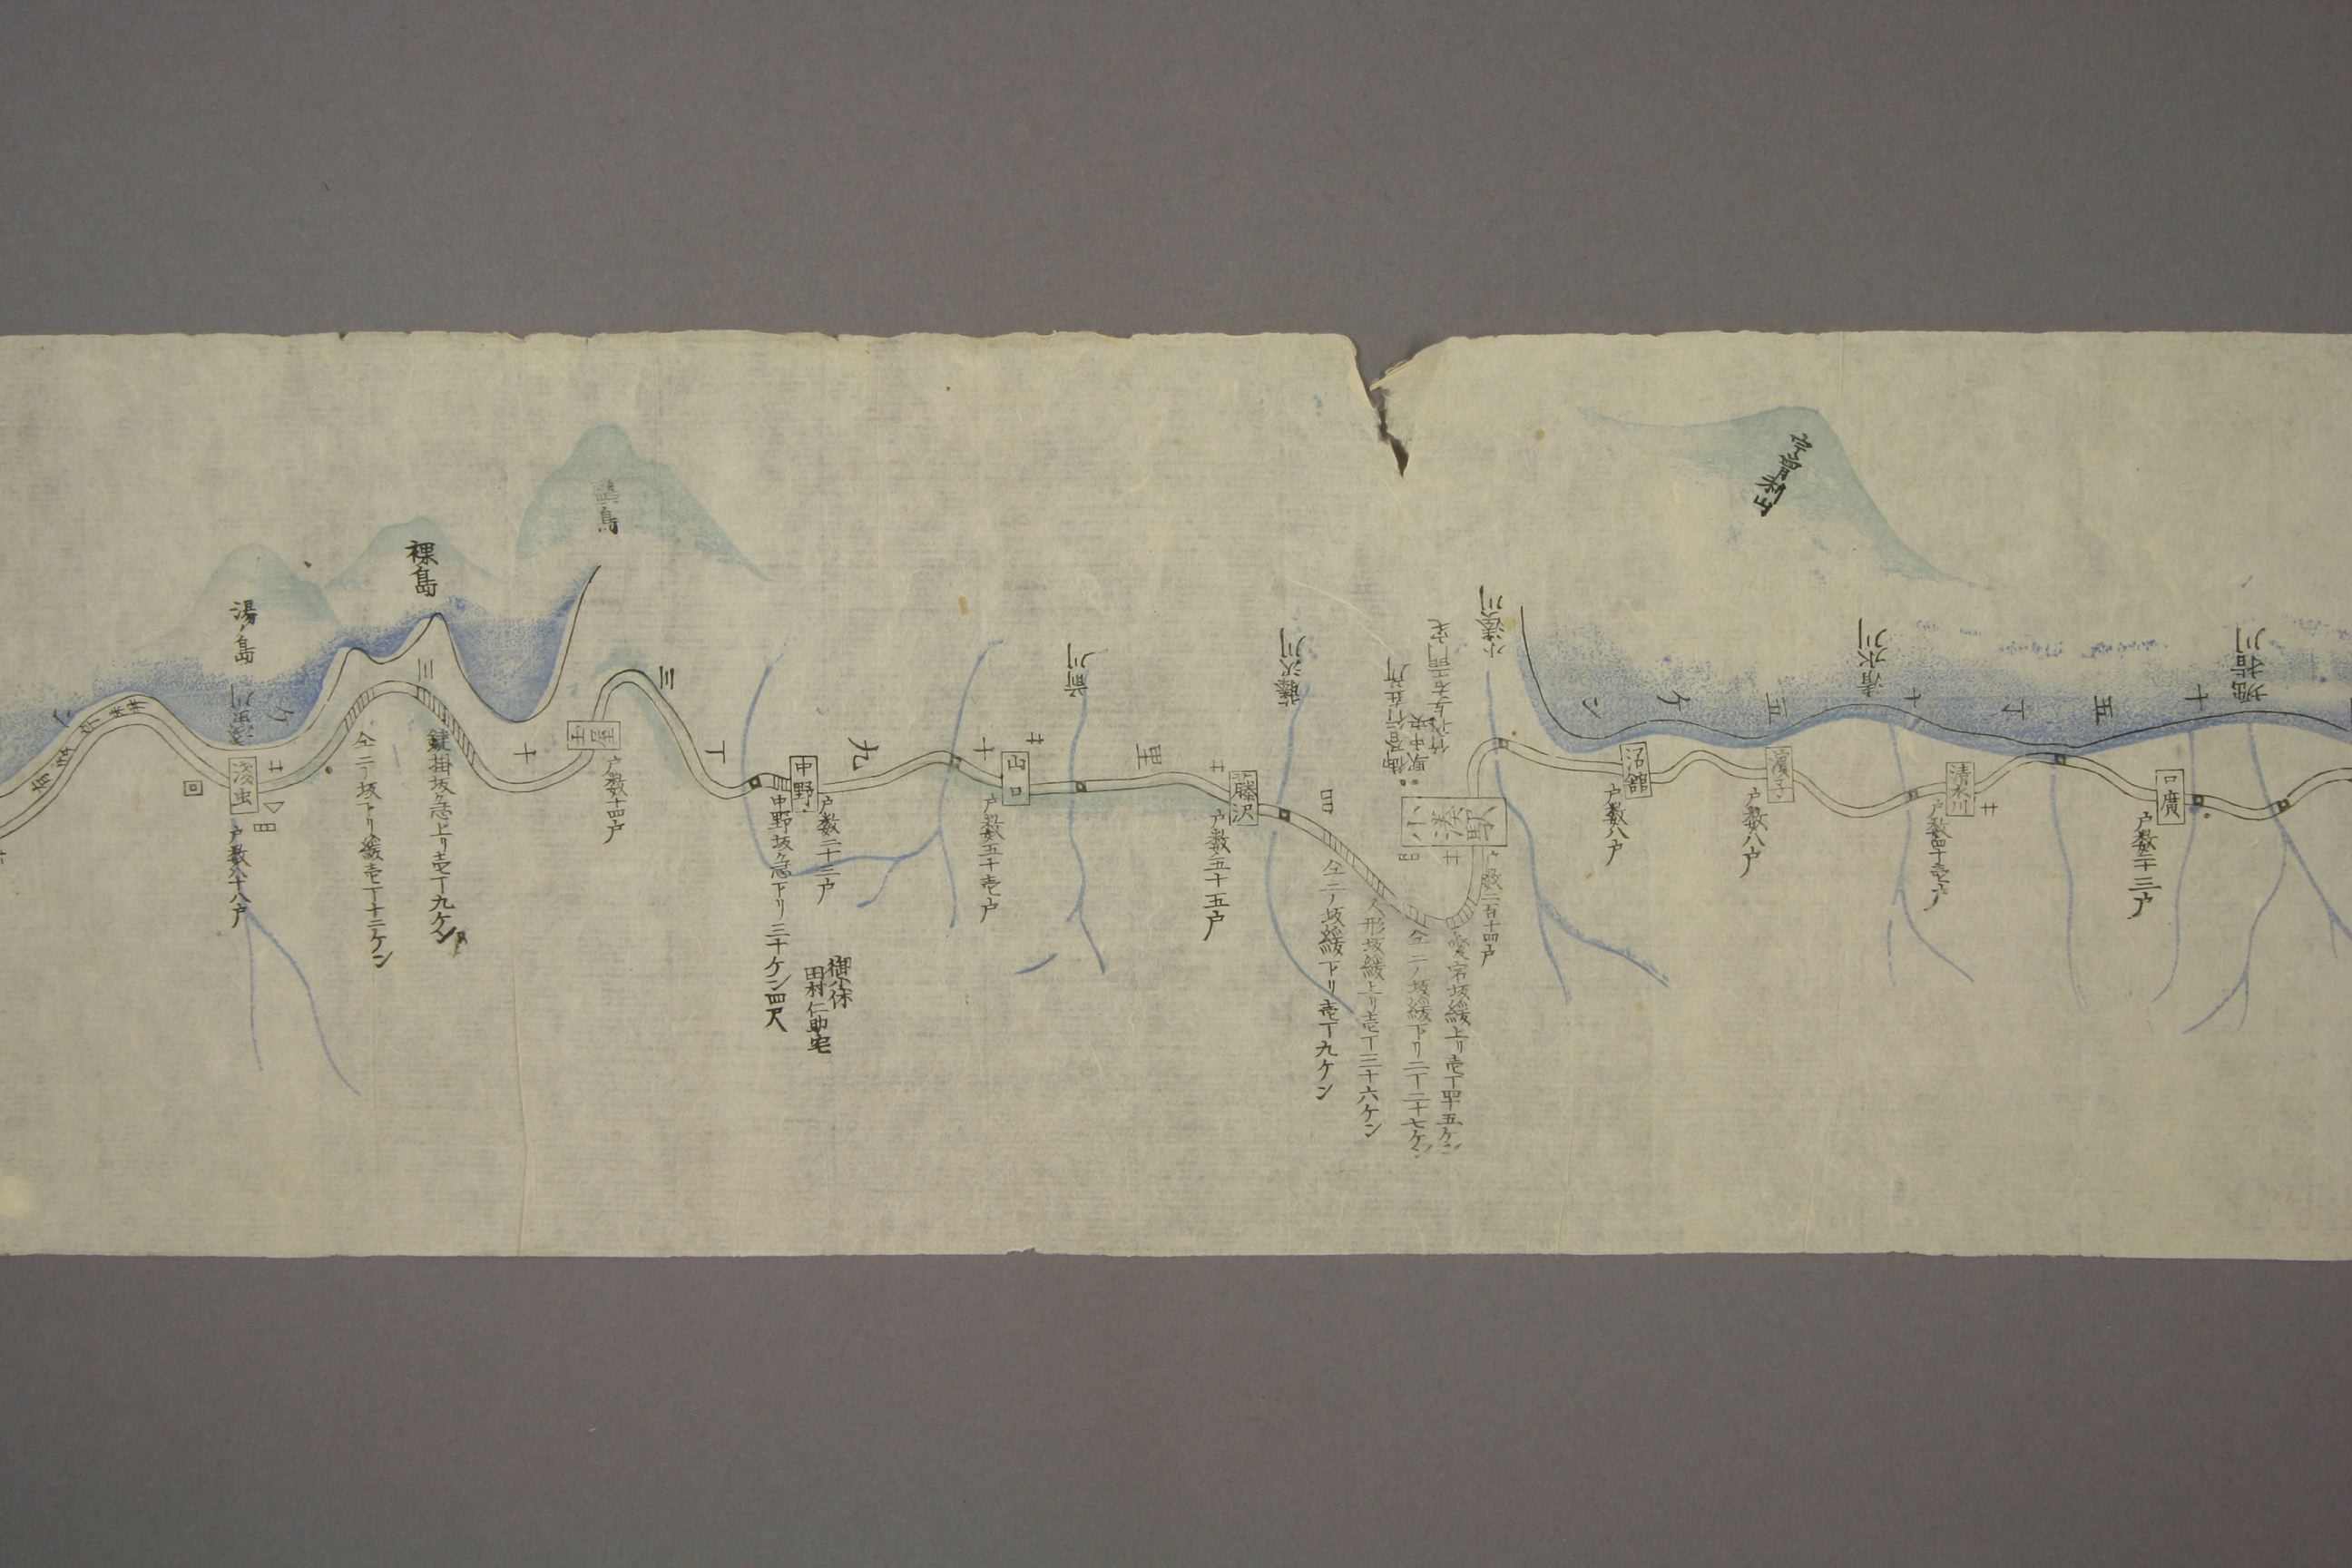 宇曽利山
堀指川
口廣
戸数三十三戸
十
五
丁
十
五
ケ
ン
清水川
清水川
戸数四十壱戸
濱子
戸数八戸
沼舘
戸数八戸
小湊川
小湊駅
戸数二百十四戸
御昼行在所
駅中央
愛宕坂緩上リ壱丁四十五ケン
仝二ノ坂緩下リ二丁二十七ケン
人形坂緩上リ壱丁三十六ケン
仝二ノ坂緩下リ壱丁九ケン
藤沢川
藤沢
戸数五十五戸
里
前川
山口
戸数五十壱戸
十
九
中野
戸数二十三戸
中野坂急下リ三十ケン四尺
御小休
田村仁助宅
丁
三
十
三
ケ
ン
土屋
戸数十四戸
鴎島
裸島
湯ノ島
鍵掛坂急上リ壱丁九ケン
仝二ノ坂下リ緩壱丁十二ケン
浅虫川
浅虫
戸数八十八戸